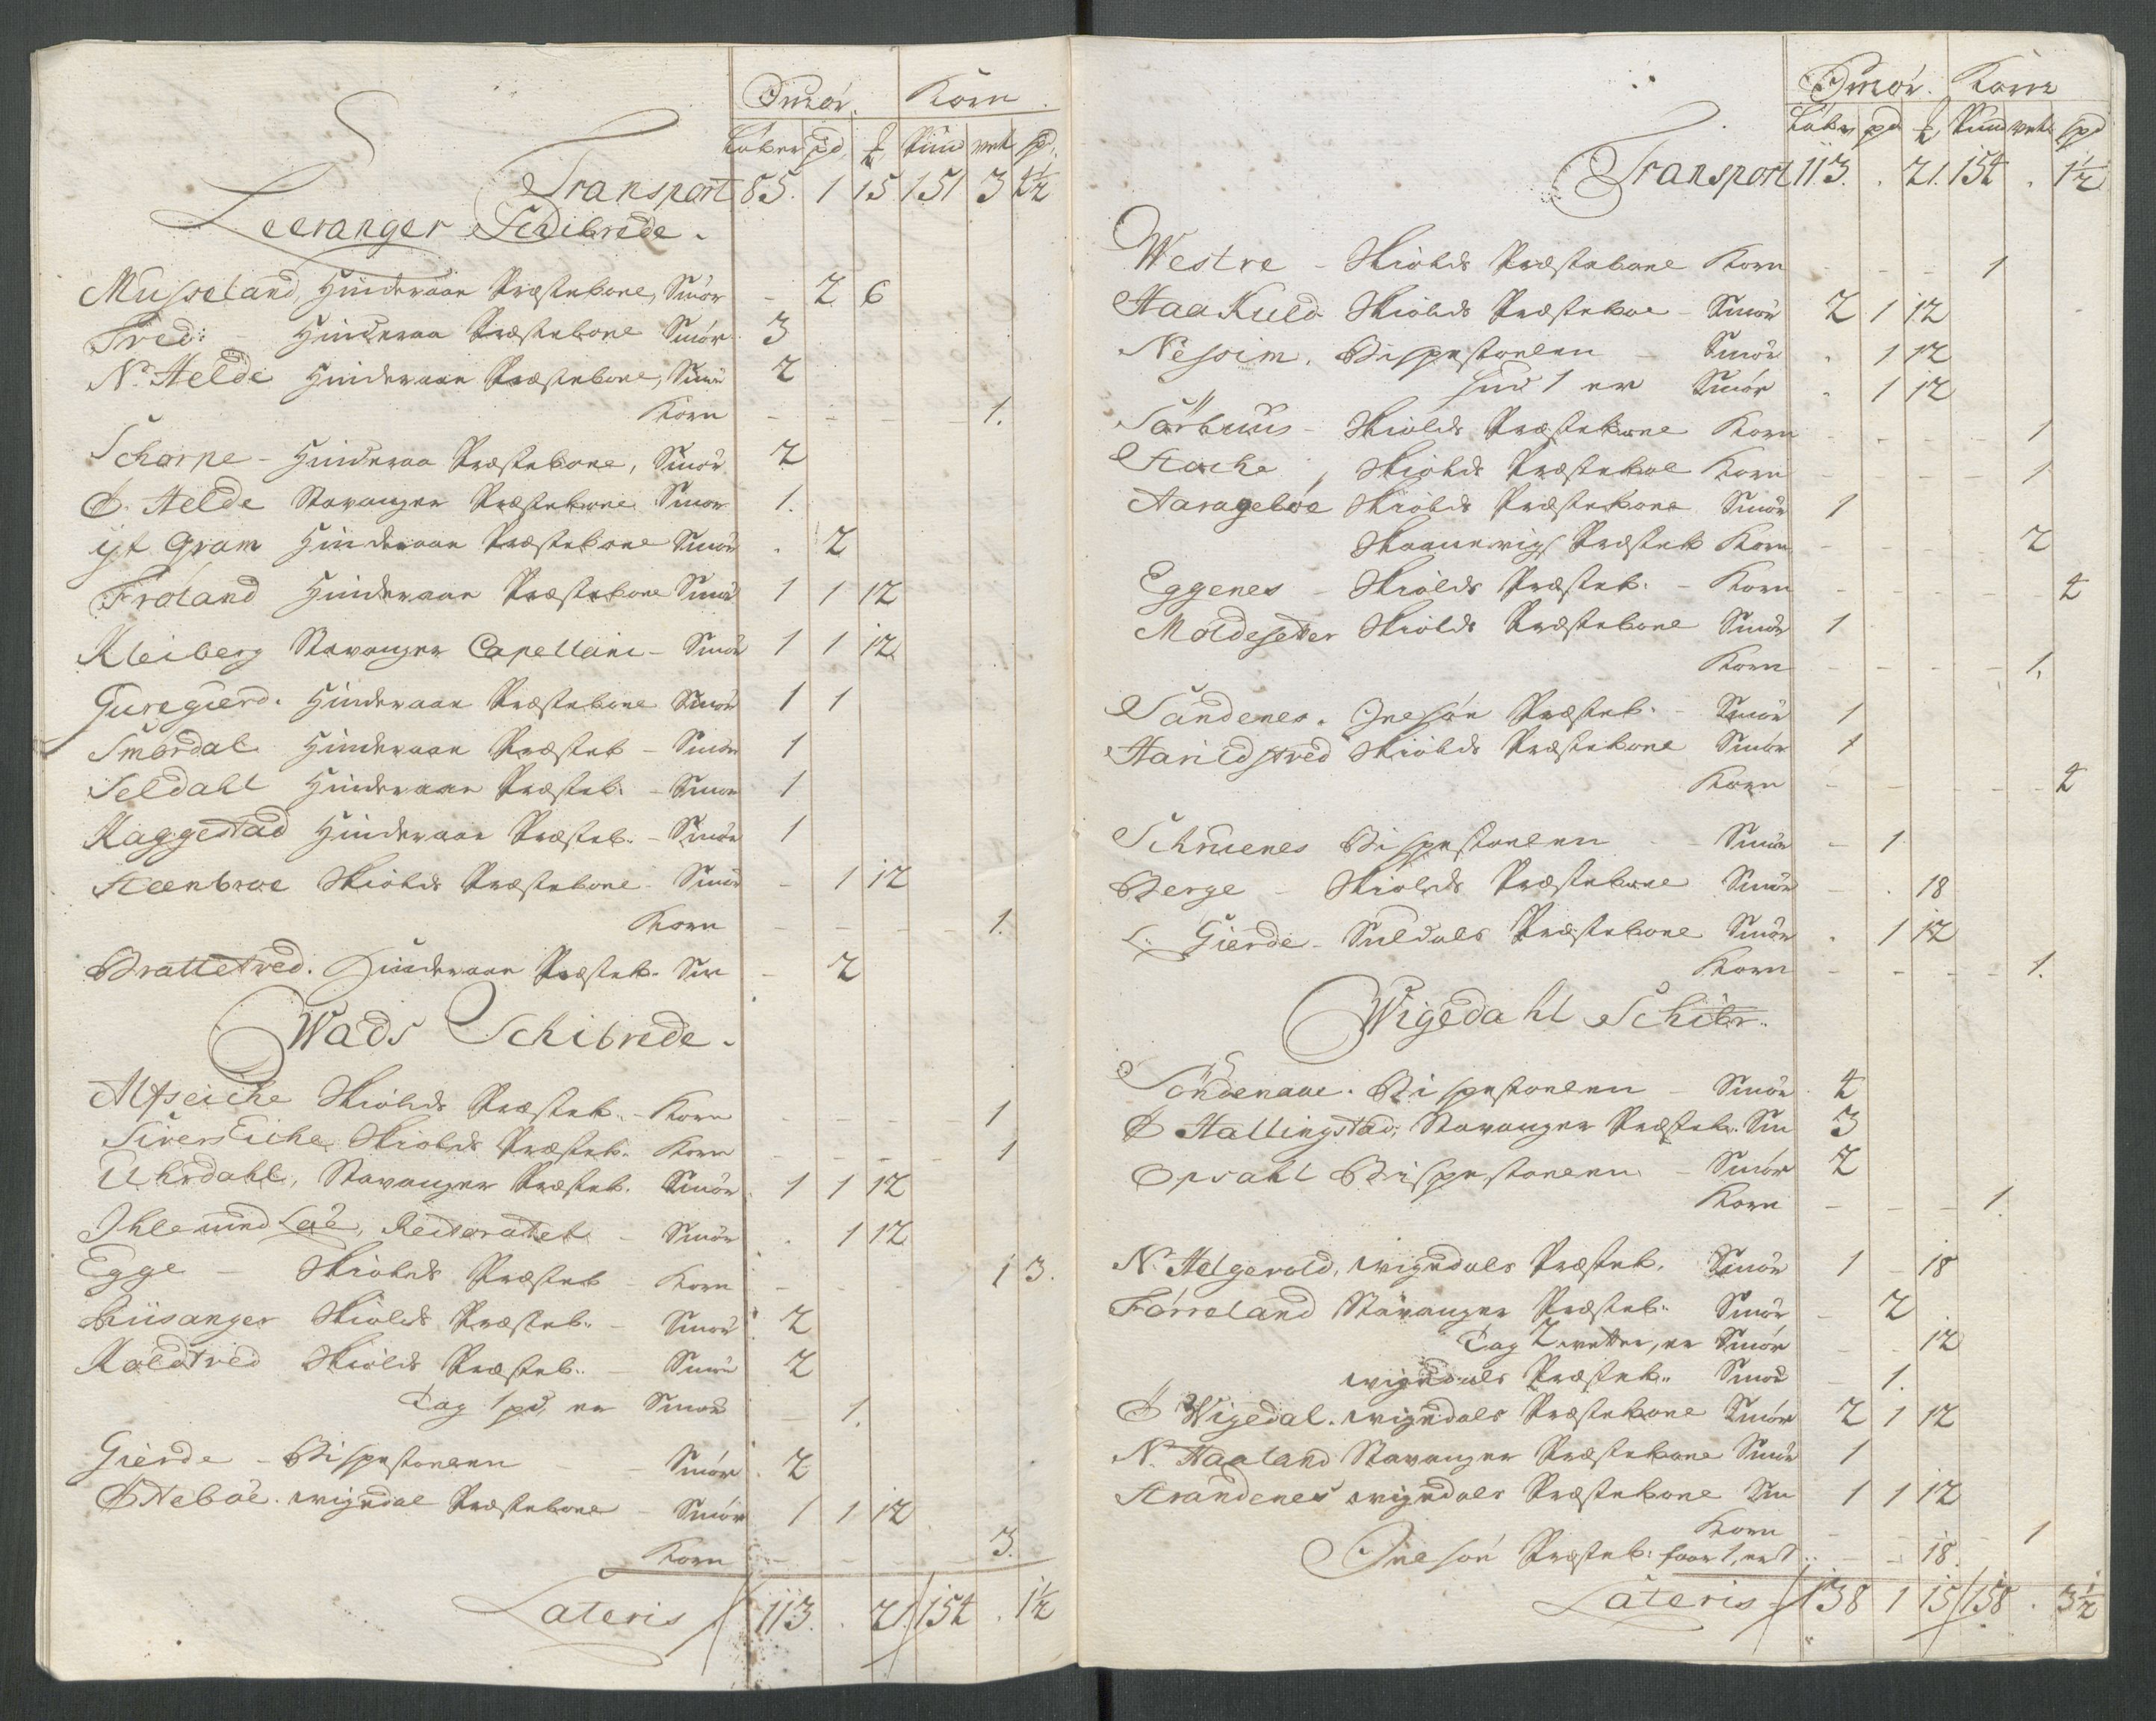 Smör. Korn.
Löber pd ℔ Pund vet sp.
Transport 85. 1 15 151 3 4½
Leeranger Schibrede.
Musseland, Hinderaae Præstebone, Smör - 2 6
Tred: - Hinderaa Præstebone Smör 3
N. Helde Hinderaae Præstebone, Smör 2
Korn - - - - 1.
Scharpe - Hinderaa Præstebone, Smör 2
Ø. Helde Stavanger Præstebone Smör 1.
yt. Gram Hinderaae Præstebone Smör . 2
Fröland Hinderaae Præstebone Smör 1 1 12
Kleiberg Stavanger Capellanie - Smör 1 1 12
Guregierd. Hinderaae Præstebone Smör 1 1
Smördal Hinderaae Præsteb - Smör 1
Seldahl Hinderaae Præsteb. - Smör 1
Raggestad Hinderaae Præsteb. - Smör 1
Steenbroe Skiolds Præstebone - Smör - 1 12
Korn - - - - 1.
Brattetred. Hinderaae Præsteb. Sm - 2
Wads Schibrede.
Alfseiche Skiolds Præsteb. - Korn - - - 1
Sivers Eiche Skiolds Præsteb. Korn - - - - 1
Uhrdahl, Stavanger Præsteb. Smör 1 1 12
Ihle med Leë, Reitzerattet - Smör . 1 12
Egge - Skiolds Præsteb - Korn - - 1 3.
Biisanger Skiolds Præsteb. - Smör 2
Raldtred Skiolds Præsteb. - Smör 2
Tag 1 pd, er Smör - 1.
Gierde - Bispestoelen - Smör 2
Ø Neböe. Wigedal Præstebone - Smör 1 1 12
Korn - - - - 3.
Lateris 113. . 21. 154 . 1½
Smör. Korn
Löber pd ℔ Pund vet spd
Transport 113. . 21. 154 . 1½
Westre - Skiolds Præstebone Korn - - - 1
Haakuld Skiolds Præsteboe - Smör 2 1 12
Nessim. Bispestoelen - Smör . 1 12
Hud 1 er Smör . 1 12
Sörhuus - Skiolds Præstebone Korn - - - 1
Hache, Skiolds Præsteboe Korn - - - - 1
Aarageböe Skiolds Præstebone Smör 1
Skaanevigs Præsteb Korn - - - - 2
Eggenes - Skiolds Præsteb. - Korn - - - - - 4
Moldesetter Skiolds Præstebone Smör 1
Korn - - - - 1.
Sandenes. Jnesön Præsteb. - Smör 1
Harildstved Skiolds Præstebone Smör 1
Korn - - - - - 4
Schruenes Bispestoelen - Smör - 1
Berge - Skiolds Præstebone Smör - . 18
L: Gierde - Suldals Præstebone Smör . 1 12
Korn - - - - 1.
Wigedahl Schibr.
Söndenaae. Bispestoelen - Smör 4
Ø Hallingstad, Stavanger Præsteb. Sm 3
Opsahl Bispestoelen - Smör 2
Korn - - - 1.
N. Helgevold, Wigedals Præsteb. Smör 1 - 18
Förreland Stavanger Præsteb. Smör - 2
Tag 2 vetter, er Smör - . 12
Wigedals Præsteb. Smör - 1.
Ø Wigedal. Wigedals Præstebone Smör 2 1 12
N. Haaland Stavanger Præstebone Smör 1
Strandenes Wigedals Præstebone Sm 1 1 12
Korn - - - - 1
Jnesön Præsteb: faar 1, er - - 18
Lateris 138 1 15 158 . 3½